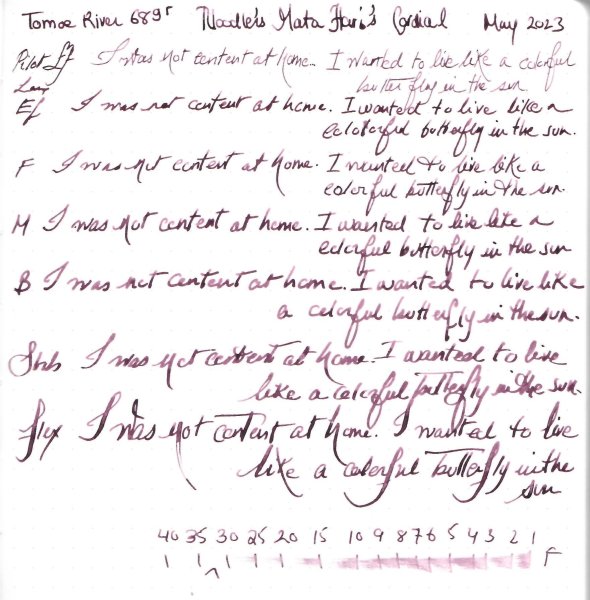 Tomoe River 68gr Noodler's Mata Hari's Cordial May 2023
Pilot ff I was not content at home. I wanted to live like a colorful
Lamy butterfly in the sun
Ef I was not content at home. I wanted to live like a
colorful butterfly in the sun.
F I was not content at home. I wanted to live like a
colorful butterfly in the sun.
M I was not content at home. I wanted to live like a
colorful butterfly in the sun
B I was not content at home. I wanted to live like
a colorful butterfly in the sun.
Stub I was not content at home. I wanted to live
like a colorful butterfly in the sun.
flex I was not content at home. I wanted to live
like a colorful butterfly in the
sun
40 35 30 25 20 15 10 9 8 7 6 5 4 3 2 1
F